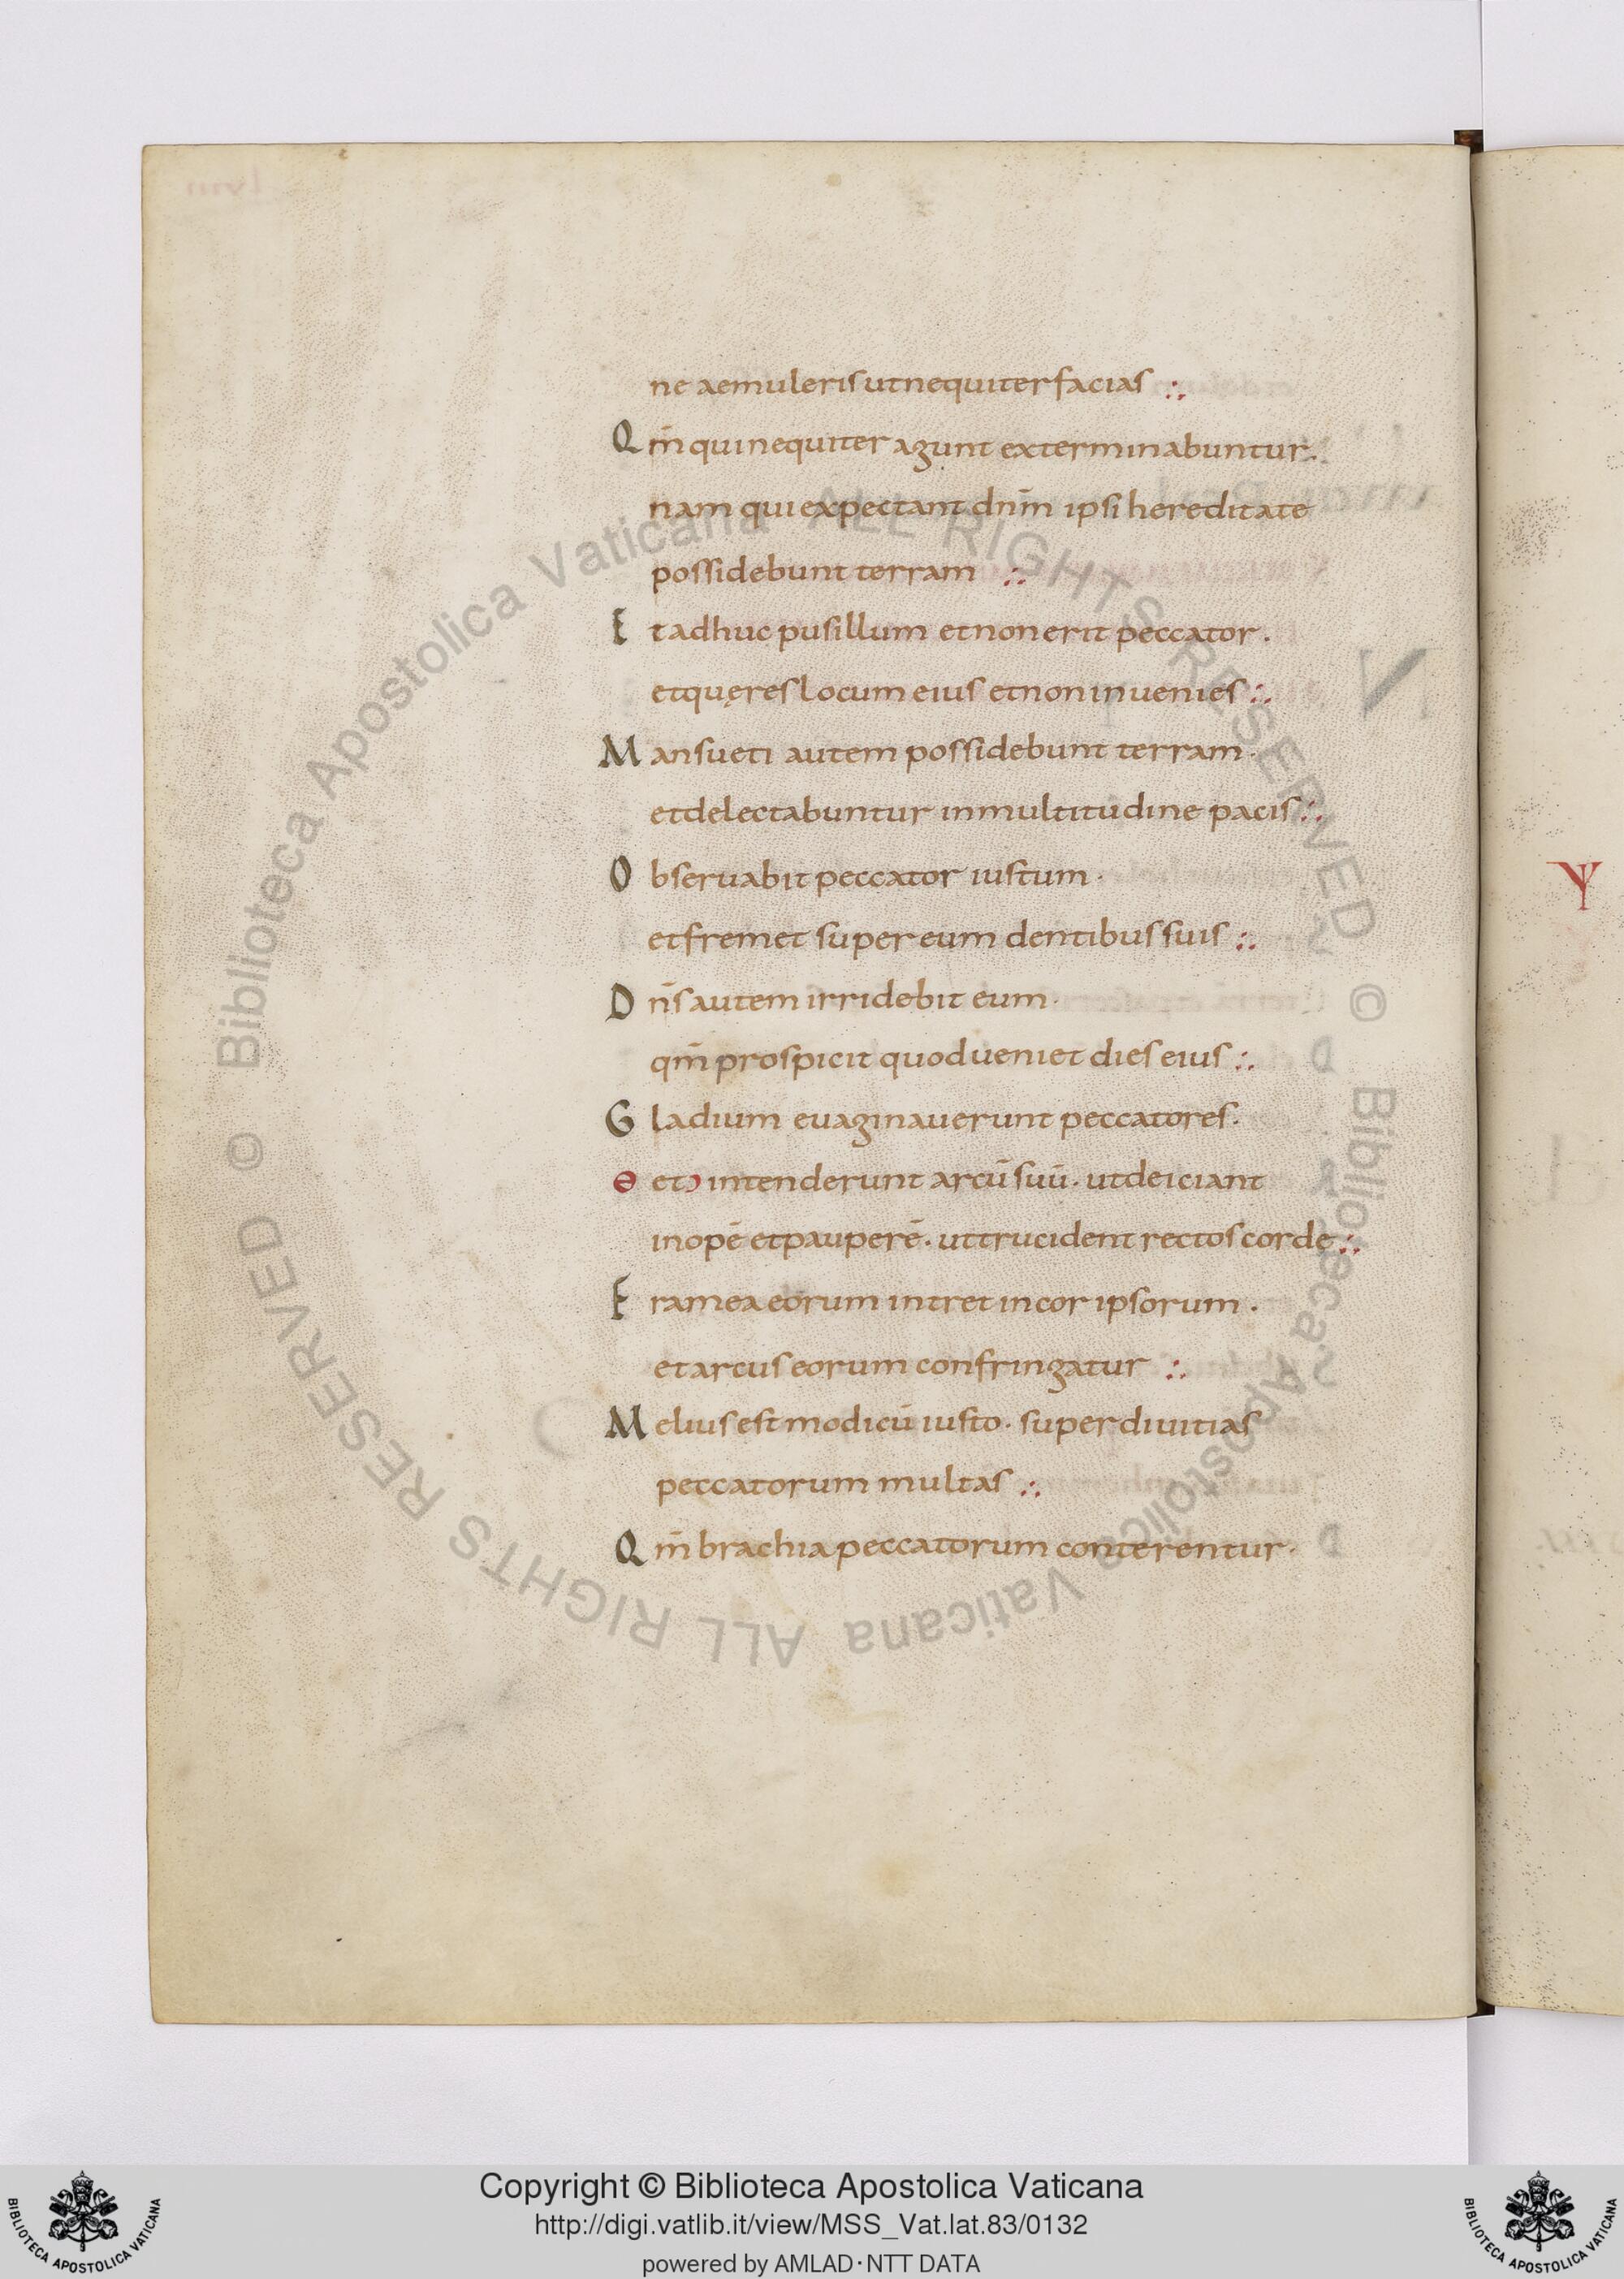 ne aemuleris ut nequiter facias :.
Qm̄ qui nequiter agunt exterminabuntur.
nam qui expectant dnm̄ ipsi hereditate
possidebunt terram :.
Et adhuc pusillum et non erit peccator.
et quęres locum eius et non inuenies :.
Mansueti autem possidebunt terram.
et delectabuntur in multitudine pacis :.
Obseruabit peccator iustum.
et fremet super eum dentibus suis :.
Dn̄s autem irridebit eum.
qm̄ prospicit quod ueniet dies eius :.
Gladium euaginauerunt peccatores.
Θ et ɔ intenderunt arcū suū. ut deiciant
inopē et pauperē. ut trucident rectos corde :.
Framea eorum intret in cor ipsorum.
et arcus eorum confringatur :.
Melius est modicū iusto. super diuitias
peccatorum multas :.
Qm̄ brachia peccatorum conterentur.
Ψ
© Biblioteca Apostolica Vaticana ALL RIGHTS RESERVED © Biblioteca Apostolica Vaticana ALL RIGHTS RESERVED
BIBLIOTECA APOSTOLICA VATICANA
Copyright © Biblioteca Apostolica Vaticana
http://digi.vatlib.it/view/MSS_Vat.lat.83/0132
powered by AMLAD·NTT DATA
BIBLIOTECA APOSTOLICA VATICANA